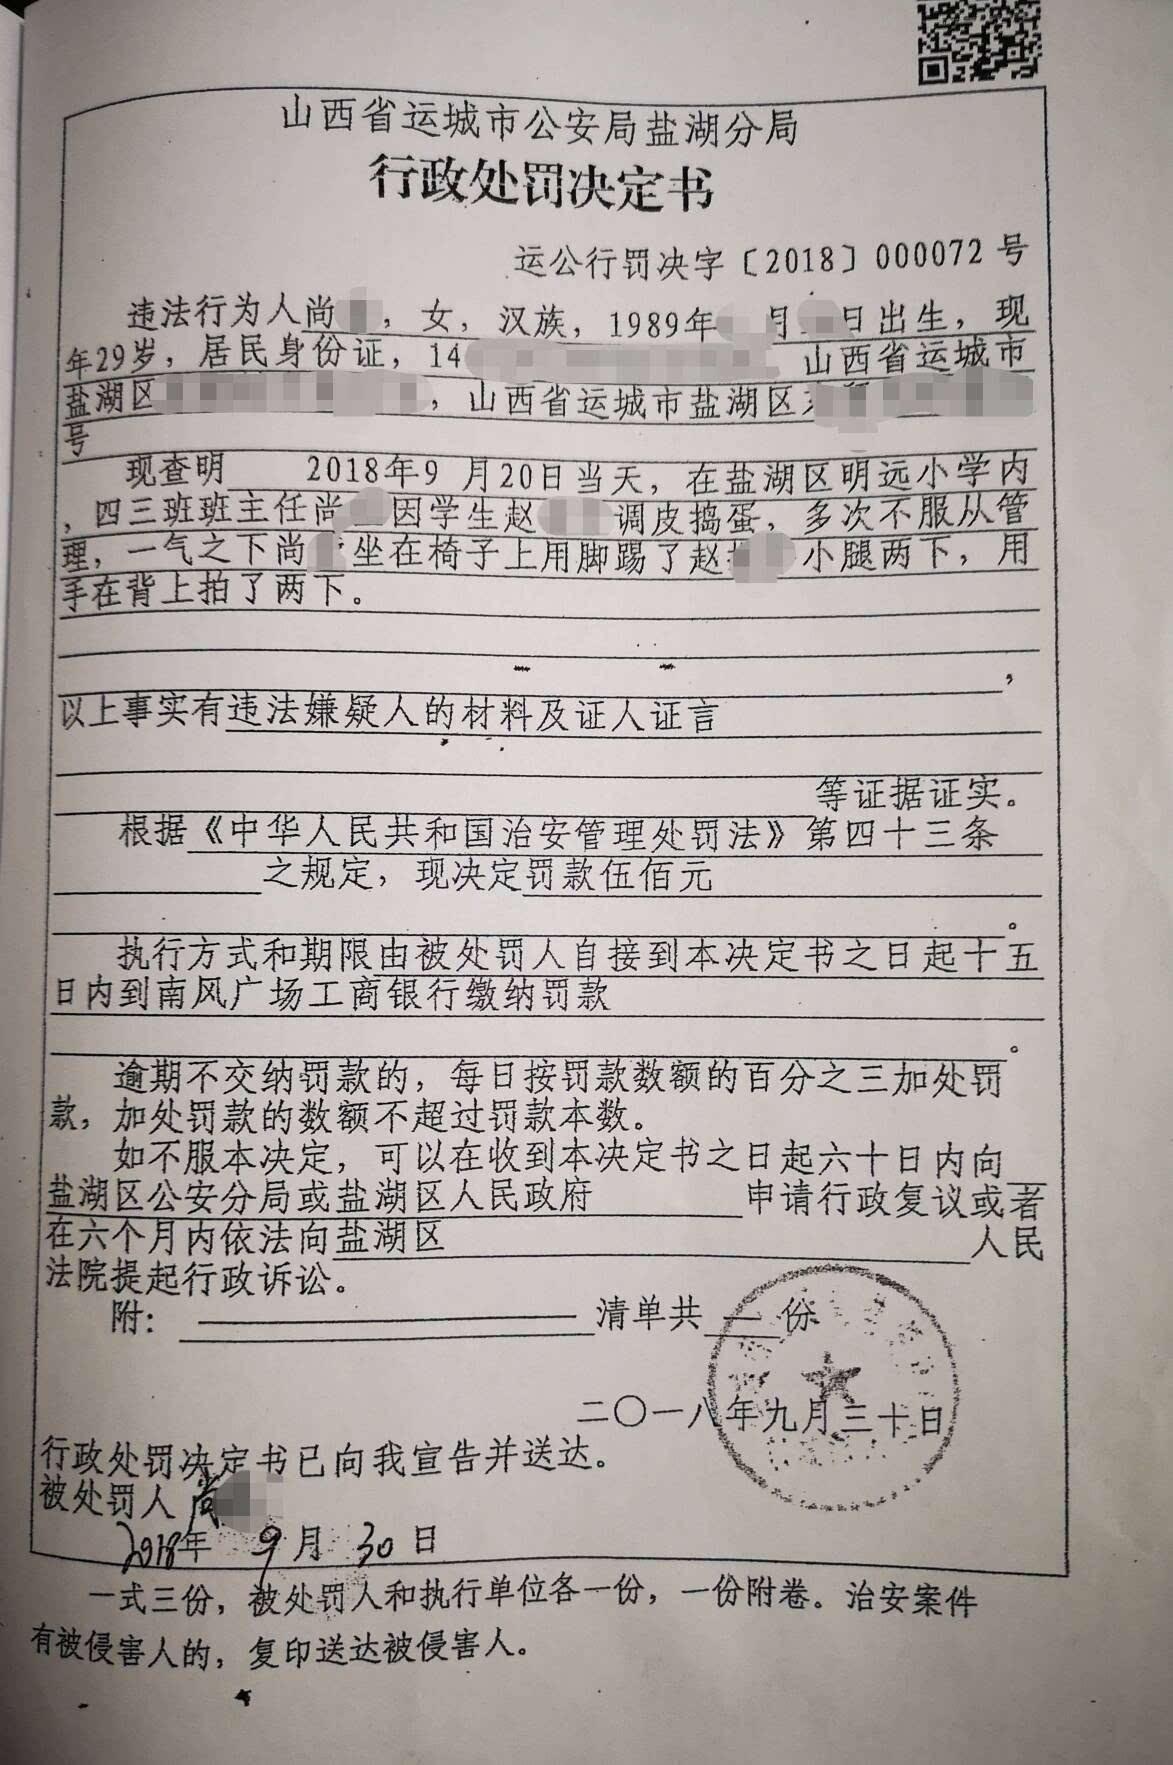 山西省运城市公安局盐湖分局
行政处罚决定书
运公行罚决字〔2018〕000072号
违法行为人尚，女，汉族，1989年 月 日出生，现
年29岁，居民身份证，14 山西省运城市
盐湖区 ，山西省运城市盐湖区
号
现查明 2018年9月20日当天，在盐湖区明远小学内
，四三班班主任尚 因学生赵 调皮捣蛋，多次不服从管
理，一气之下尚 坐在椅子上用脚踢了赵 小腿两下，用
手在背上拍了两下。
，
以上事实有违法嫌疑人的材料及证人证言
等证据证实。
根据《中华人民共和国治安管理处罚法》第四十三条
之规定，现决定罚款伍佰元
。
执行方式和期限由被处罚人自接到本决定书之日起十五
日内到南风广场工商银行缴纳罚款
。
逾期不交纳罚款的，每日按罚款数额的百分之三加处罚
款，加处罚款的数额不超过罚款本数。
如不服本决定，可以在收到本决定书之日起六十日内向
盐湖区公安分局或盐湖区人民政府 申请行政复议或者
在六个月内依法向盐湖区 人民
法院提起行政诉讼。
附： 清单共 一 份
二〇一八年九月三十日
行政处罚决定书已向我宣告并送达。
被处罚人 尚
2018年 9月 30日
一式三份，被处罚人和执行单位各一份，一份附卷。治安案件
有被侵害人的，复印送达被侵害人。